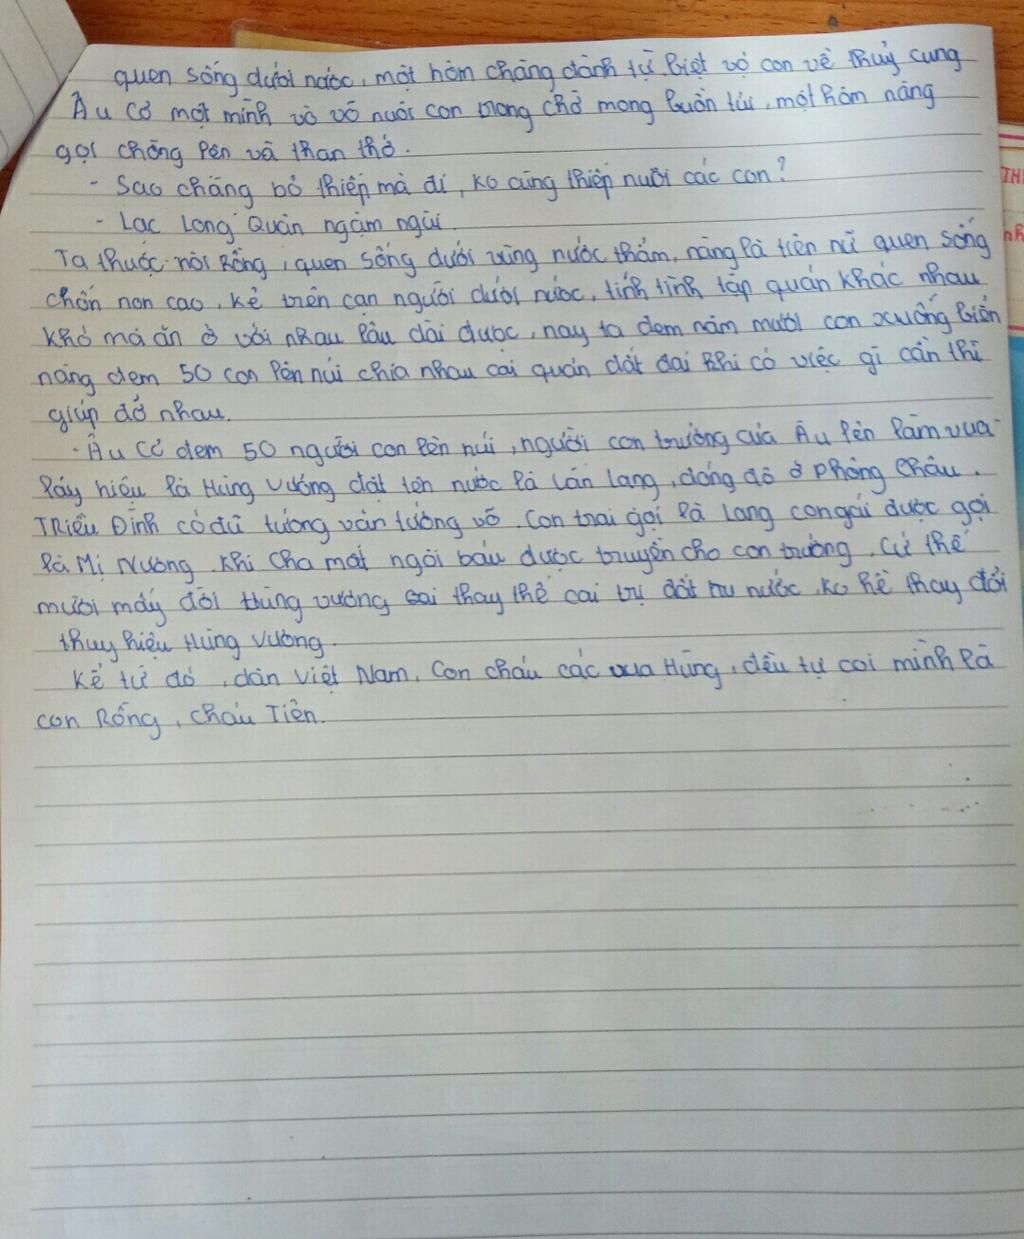 quen sống dưới nước, một hôm chàng đành từ biệt vợ con về thuỷ cung
Âu Cơ một mình vò võ nuôi con trong chờ mong buồn tủi, một hôm nàng
gọi chồng lên và than thở.
- Sao chàng bỏ thiếp mà đi, ko cùng thiếp nuôi các con?
- Lạc Long Quân ngậm ngùi.
Ta thuộc nòi Rồng, quen sống dưới vùng nước thẳm, nàng là tiên nữ quen sống
chốn non cao, kẻ trên cạn người dưới nước, tính tình tập quán khác nhau
khó mà ăn ở với nhau lâu dài được, nay ta đem năm mươi con xuống biển
nàng đem 50 con lên núi chia nhau cai quản đất đai khi có việc gì cần thì
giúp đỡ nhau.
- Âu Cơ đem 50 người con lên núi, người con trưởng của Âu lên làm vua
lấy hiệu là Hùng Vương đặt tên nước là Văn Lang, đóng đô ở Phong Châu.
Triều Đình có đủ tướng văn tướng võ. Con trai gọi là lang con gái được gọi
là Mị Nương. Khi Cha mất ngôi báu được truyền cho con trưởng. Cứ thế
mười mấy đời Hùng vương thay thế cai trị đất nước, ko hề thay đổi
thuy hiệu Hùng Vương.
Kể từ đó, dân Việt Nam, Con cháu các vua Hùng, đều tự coi mình là
con Rồng, cháu Tiên.